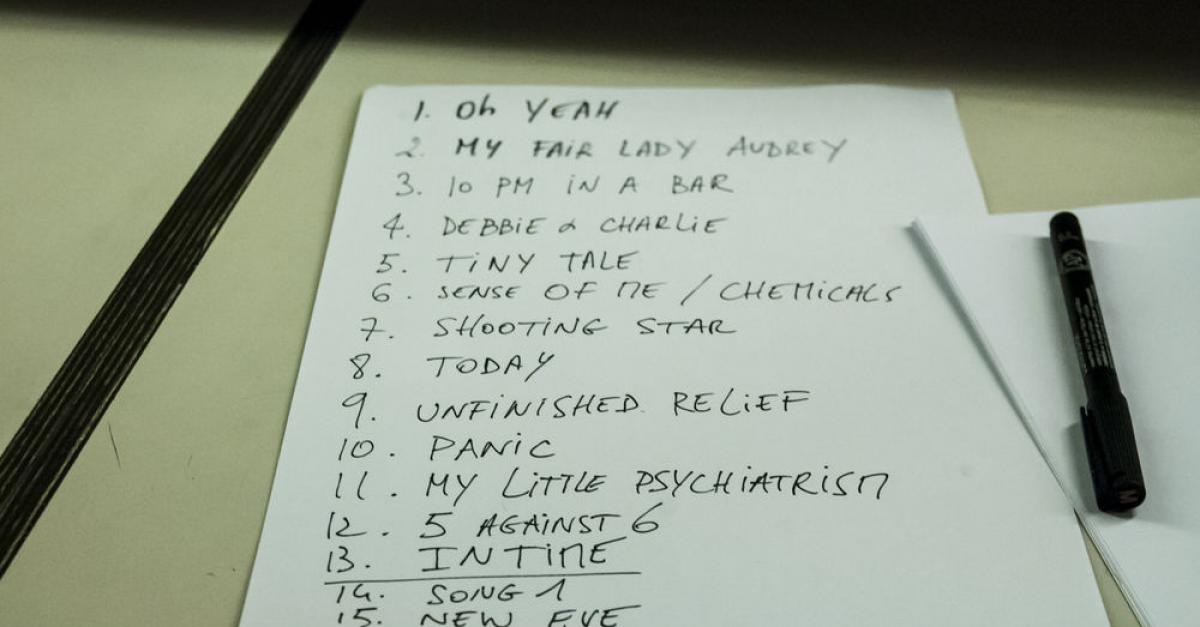 1. Oh YEAH
2. MY FAIR LADY AUDREY
3. 10 PM iN A BAR
4. DEBBiE & CHARLiE
5. TiNY TALE
6. SENSE OF ME / CHEMiCALS
7. SHOOTiNG STAR
8. TODAY
9. UNFiNiSHED RELiEF
10. PANiC
11. MY LiTTLE PSYCHiATRiSM
12. 5 AGAiNST 6
13. IN TiME
14. SONG 1
15. NEW EVE
M